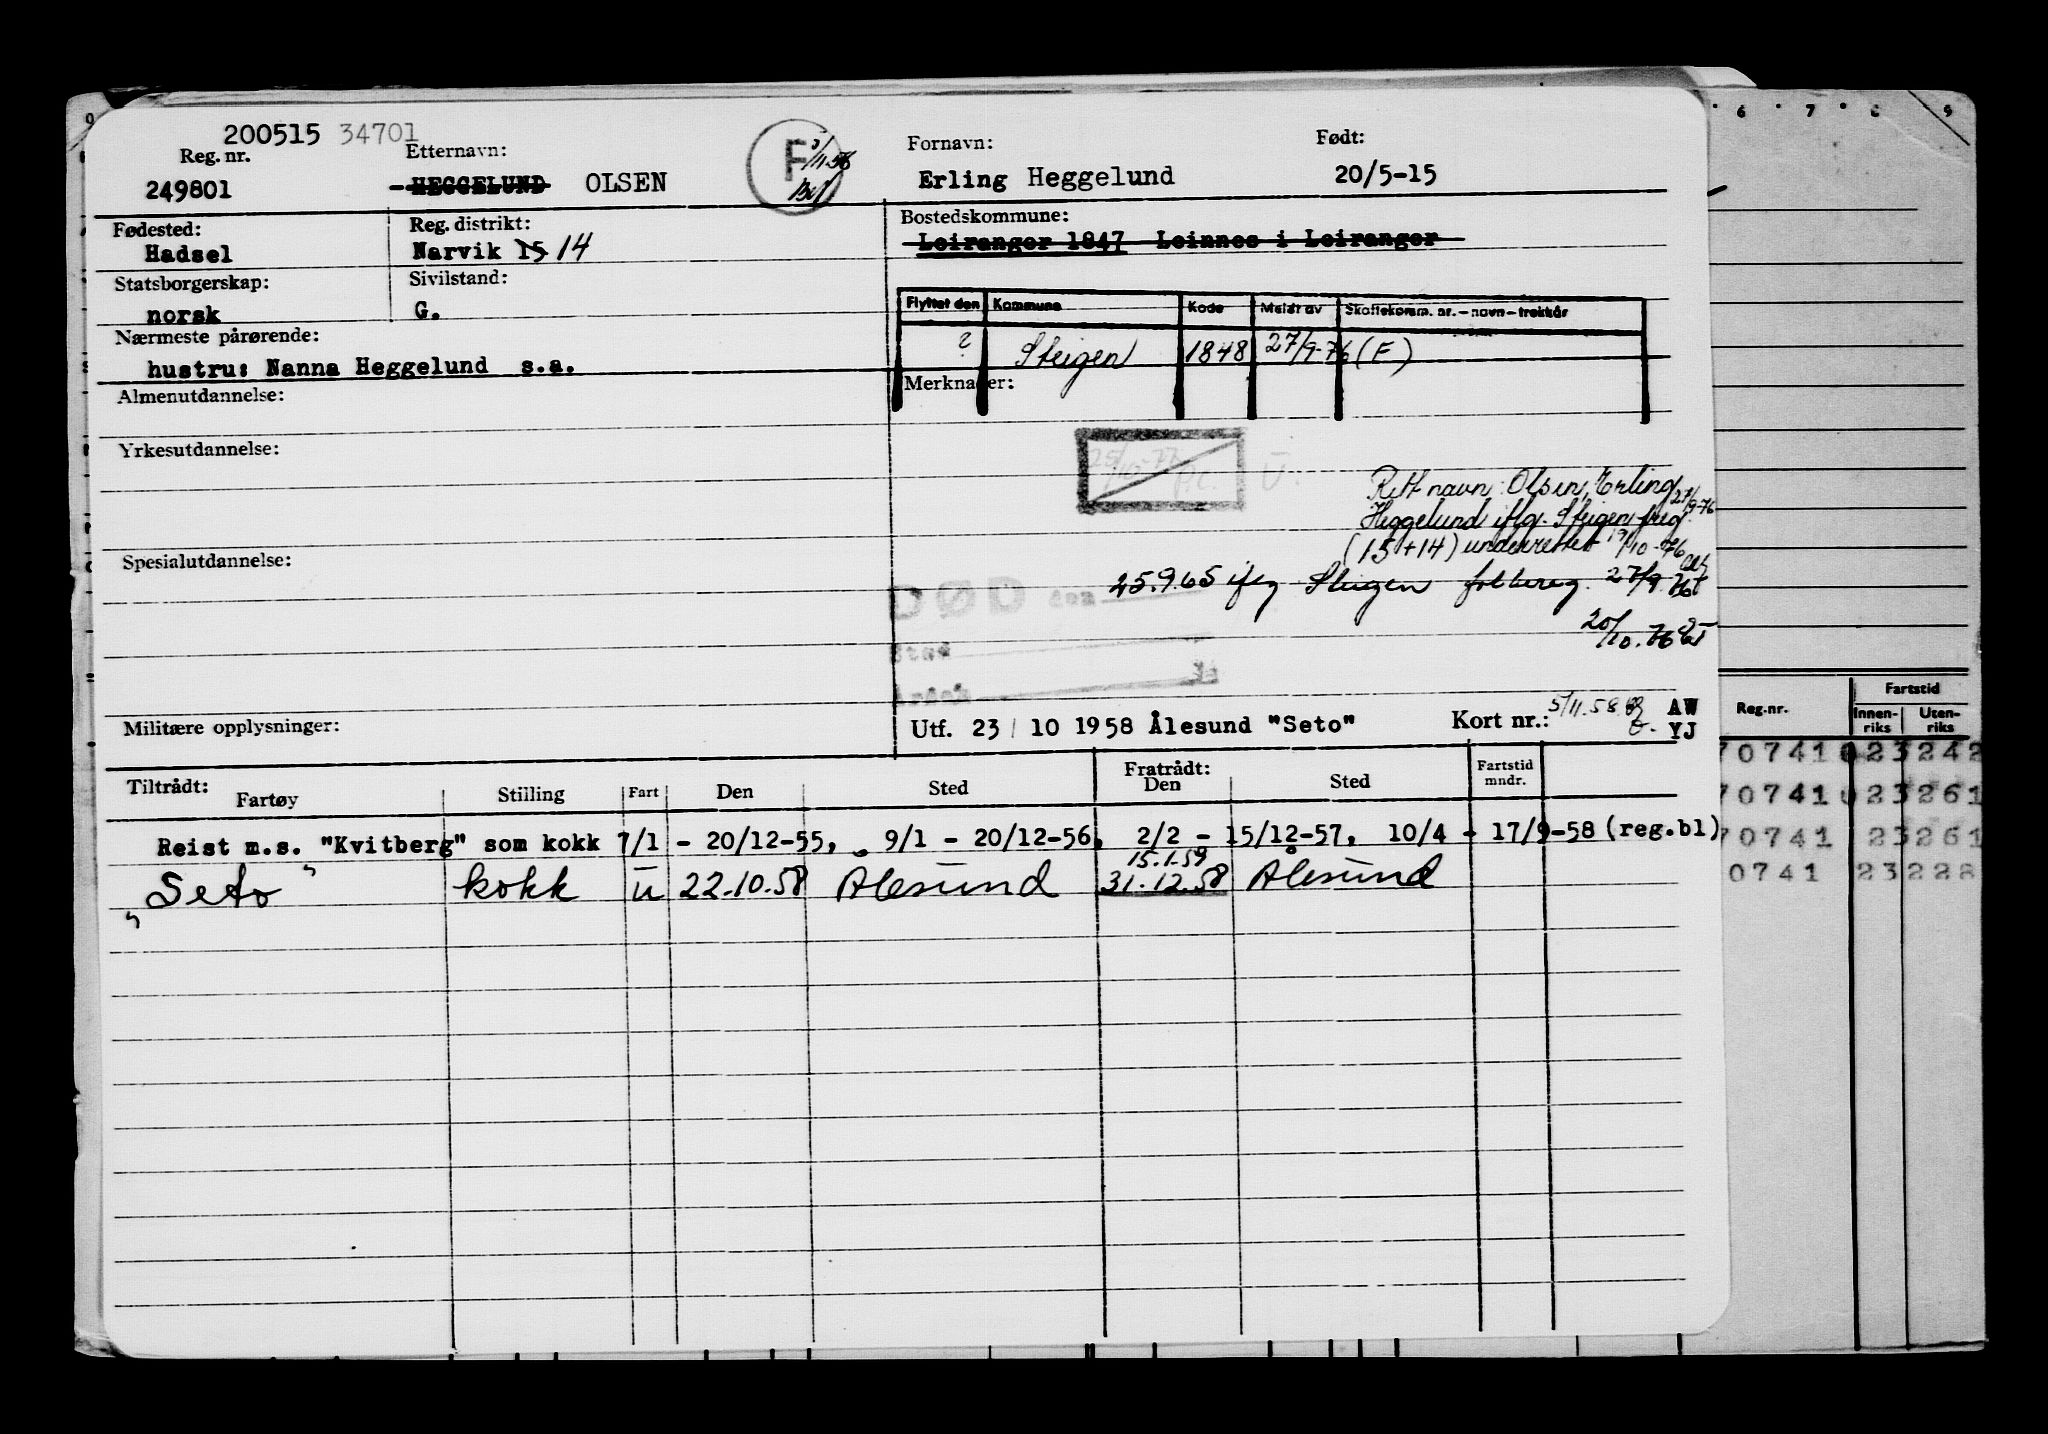 200515 34701
Reg. nr. Etternavn: Fornavn: Født:
249801 HEGGELUND OLSEN F Erling Heggelund 20/5-15
Fødested: Reg. distrikt: Bostedskommune:
Hadsel Narvik 15 14 Leiranger 1847 Leinnes i Leiranger
Statsborgerskap: Sivilstand:
norsk G.
Flyttet den Kommune Kode Meldt av Skattekomm. nr. – navn – trekkår
? Steigen 1848 27/9-76 (F)
Nærmeste pårørende:
hustru: Nanna Heggelund s.a.
Almenutdannelse: Merknader:
Yrkesutdannelse:
25/10-77 U.
Rett navn: Olsen, Erling 27/9-76
Heggelund iflg. Steigen freg.
(15+14) underrettet 19/10-76
Spesialutdannelse:
DØD den 25.9.65 ifg Steigen folkereg. 27/9.76
Sted
20/10.76
Årsak
Militære opplysninger: Utf. 23/10 1958 Ålesund "Seto" Kort nr.: 5/11.58 AW
YJ
Tiltrådt: Fratrådt:
Fartøy Stilling Fart Den Sted Den Sted Fartstid mndr.
Reist m.s. "Kvitberg" som kokk 7/1 - 20/12-55, 9/1 - 20/12-56, 2/2 - 15/12-57, 10/4 - 17/9-58 (reg.bl)
15.1.59
"Seto" kokk U 22.10.58 Ålesund 31.12.58 Ålesund
6 7 8 9
Reg.nr. Fartstid
Innen-riks Uten-riks
70741 023242
70741 023261
70741 23261
0741 23228